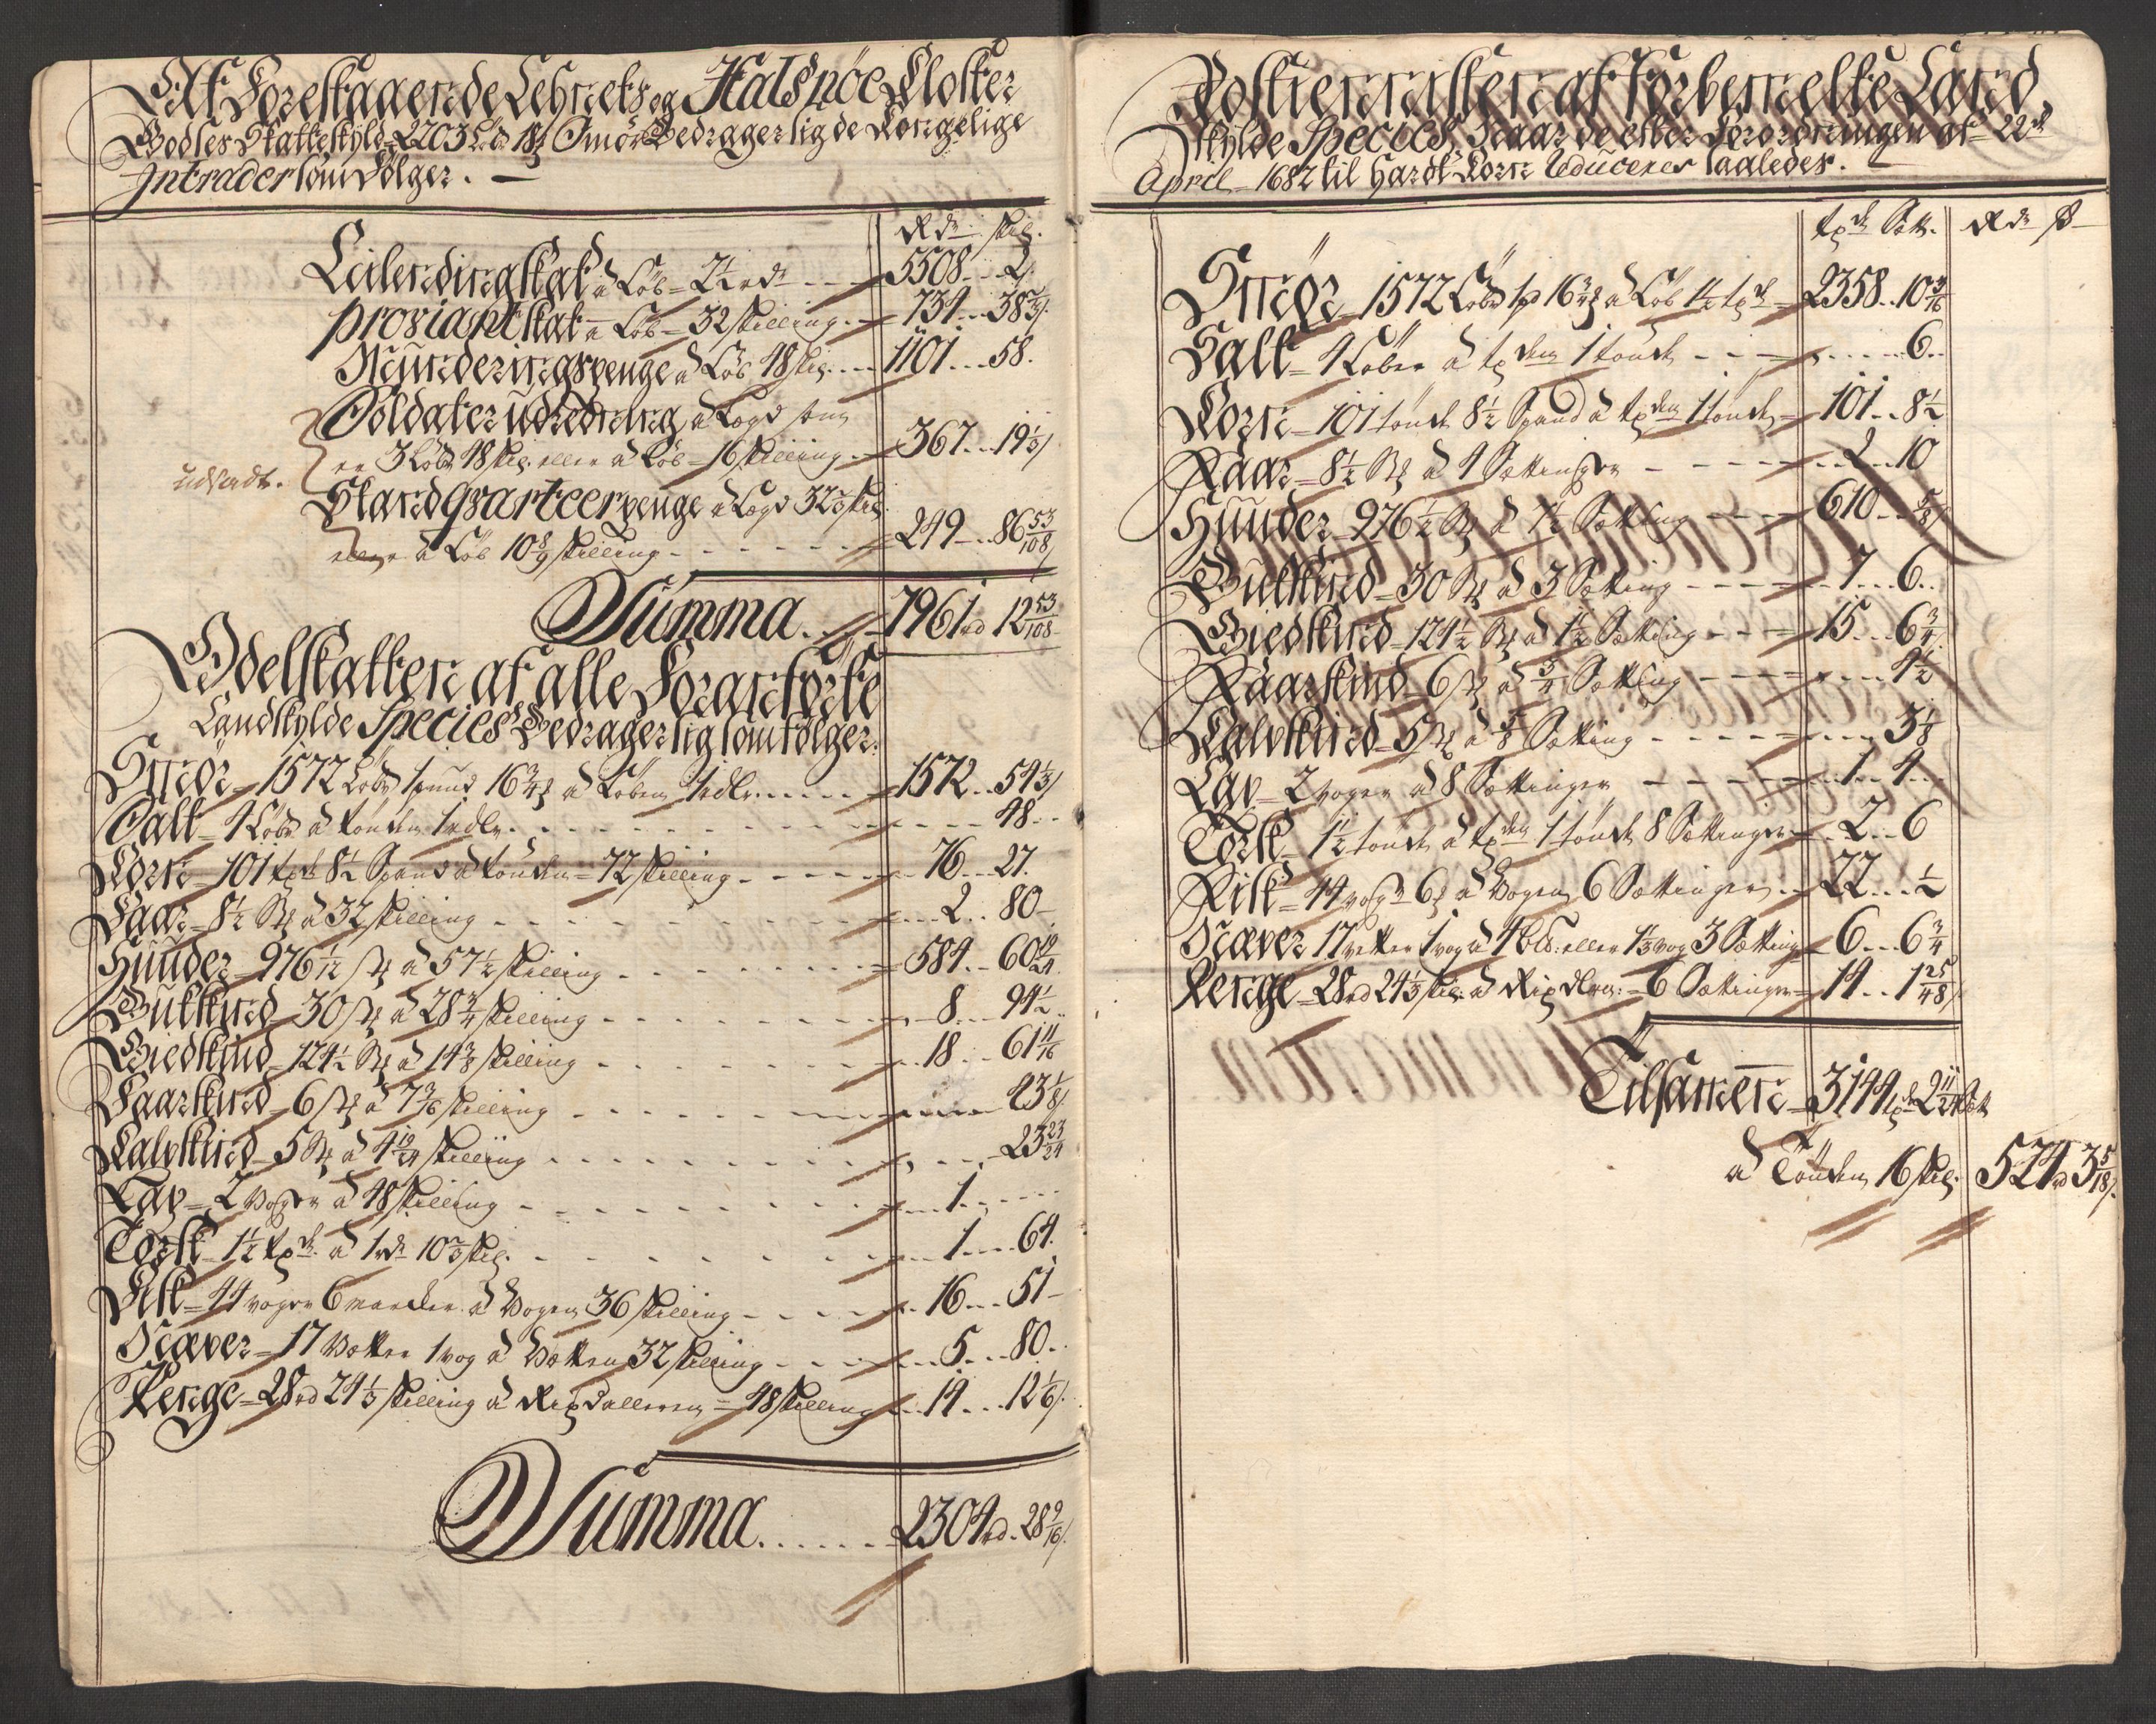 Af Forestaaende Lehnets og Halsnöe Closter
Godses Skatteskyld 2203 Løb 18 Smör Bedrager sig de Kongelige
Intrader som Følger.
Rdr skil.
Leilendingskat à Løb 2½ rdr 5508 2
Proviantskat à Løb 32 skilling 734 38 2/3
Munderingspenge à Løb 48 skil. 1101 58
Soldater udredning à Legd som
er 3 Løber 48 skil. eller à Løb 16 skilling 367 19 1/3
udsadt.
Standqvarteerpenge à Legd 32 2/3 skil.
eller à Løb 10 8/9 skilling 249 86 53/108
Summa 7961 rd 12 53/108
Odelskatten af alle Foranførte
Landskylds Species Bedrager sig som følger:
Smör 1572 Løber 1 pund 16¾ à Løben 1 rdlr 1572 54 1/3
Salt 4 Løber à tønden 1 rdlr. 48
Korn 101 tøndr 8½ Spand à tønden 72 skilling 76 27
Faar 8½ à 32 skilling 2 80
Huuder 976 1/12 à 57½ skilling 584 60 19/24
Bukskind 30 à 28¾ skilling 8 94½
Giedskind 124½ à 14 3/8 skilling 18 61 11/16
Faarskind 6 à 7 3/16 skilling 43 1/8
Kalvskind 5 à 4 19/24 skilling 23 23/24
Lax 2 voger à 48 skilling 1
Torsk 1½ tøndr à 1 rdr 10 2/3 skil. 1 64
Fisk 44 voger 6 marker à Vogen 36 skilling 16 51
Næver 17 Vetter 1 vog à Vetten 32 skilling 5 80
Penge 28 rd 24 1/3 skilling à Rixdalleren 48 skilling 14 12 1/6
Summa 2304 rd 28 9/16
Rostienniste af förbemelte Land
skylds Species, naar de efter Forordningen af 22de
April 1682 til Hardt Korn Reduceres saaledes.
tøndr Sett. Rdr s
Smör 1572 Løber 1 pd 16¾ à Løb 1½ tøndr 2358 10 3/16
Salt 4 Løber à tønden 1 tönde 6
Korn 101 tönde 8½ Spand à tønden 1 tönde 101 8½
Faar 8½ à 4 Settinger 2 10
Huuder 976½ à 7½ Setting 610 5/8
Bukskind 30 à 3 Setting 7 6
Giedskind 124½ à 1½ Setting 15 6¾
Faarskind 6 à ¾ Setting 4½
Kalvskind 5 à 5/8 Setting 3 1/8
Lax 2 voger à 8 Settinger 1 4
Torsk 1½ tönde à tønden 1 tönde 8 Settinger 2 6
Fisk 44 voger 6 à Vogen 6 Settinger 22 ½
Næver 17 vetter 1 vog à 4 bd. eller 1⅓ vog 3 Setting 6 6¾
Penge 28 rd 24 1/3 skil. à Rixdlren 6 Settinger 14 1 25/48
Tilsamen 3144 tøndr 2 11/24 Sett
à Tönden 16 skil. 524 rd 3 5/18